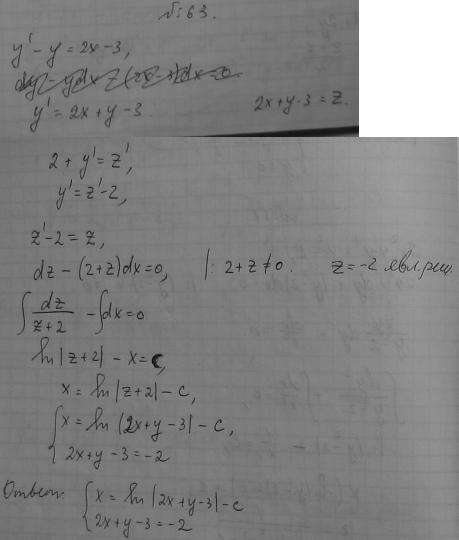 №63.
y' - y = 2x - 3,
y' = 2x + y - 3.
2x + y - 3 = z.
2 + y' = z',
y' = z' - 2,
z' - 2 = z,
dz - (2+z)dx = 0, |: 2+z ≠ 0. z = -2 явл. реш.
∫ dz/(z+2) - ∫dx = 0
ln|z+2| - x = C,
x = ln|z+2| - c,
{ x = ln|2x+y-3| - c,
2x+y-3 = -2
Ответ: { x = ln|2x+y-3| - c
2x+y-3 = -2